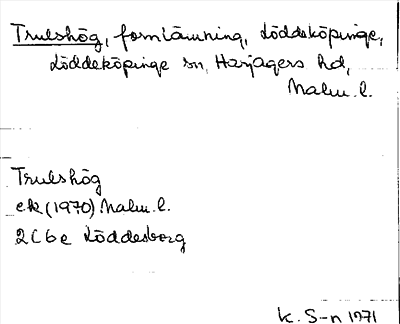 Trulshög, fornlämning, Löddeköpinge,
Löddeköpinge sn, Harjagers hd,
Malm. l.
Trulshög
ek (1970) Malm. l.
2C6e Löddesborg
K. S-n 1971